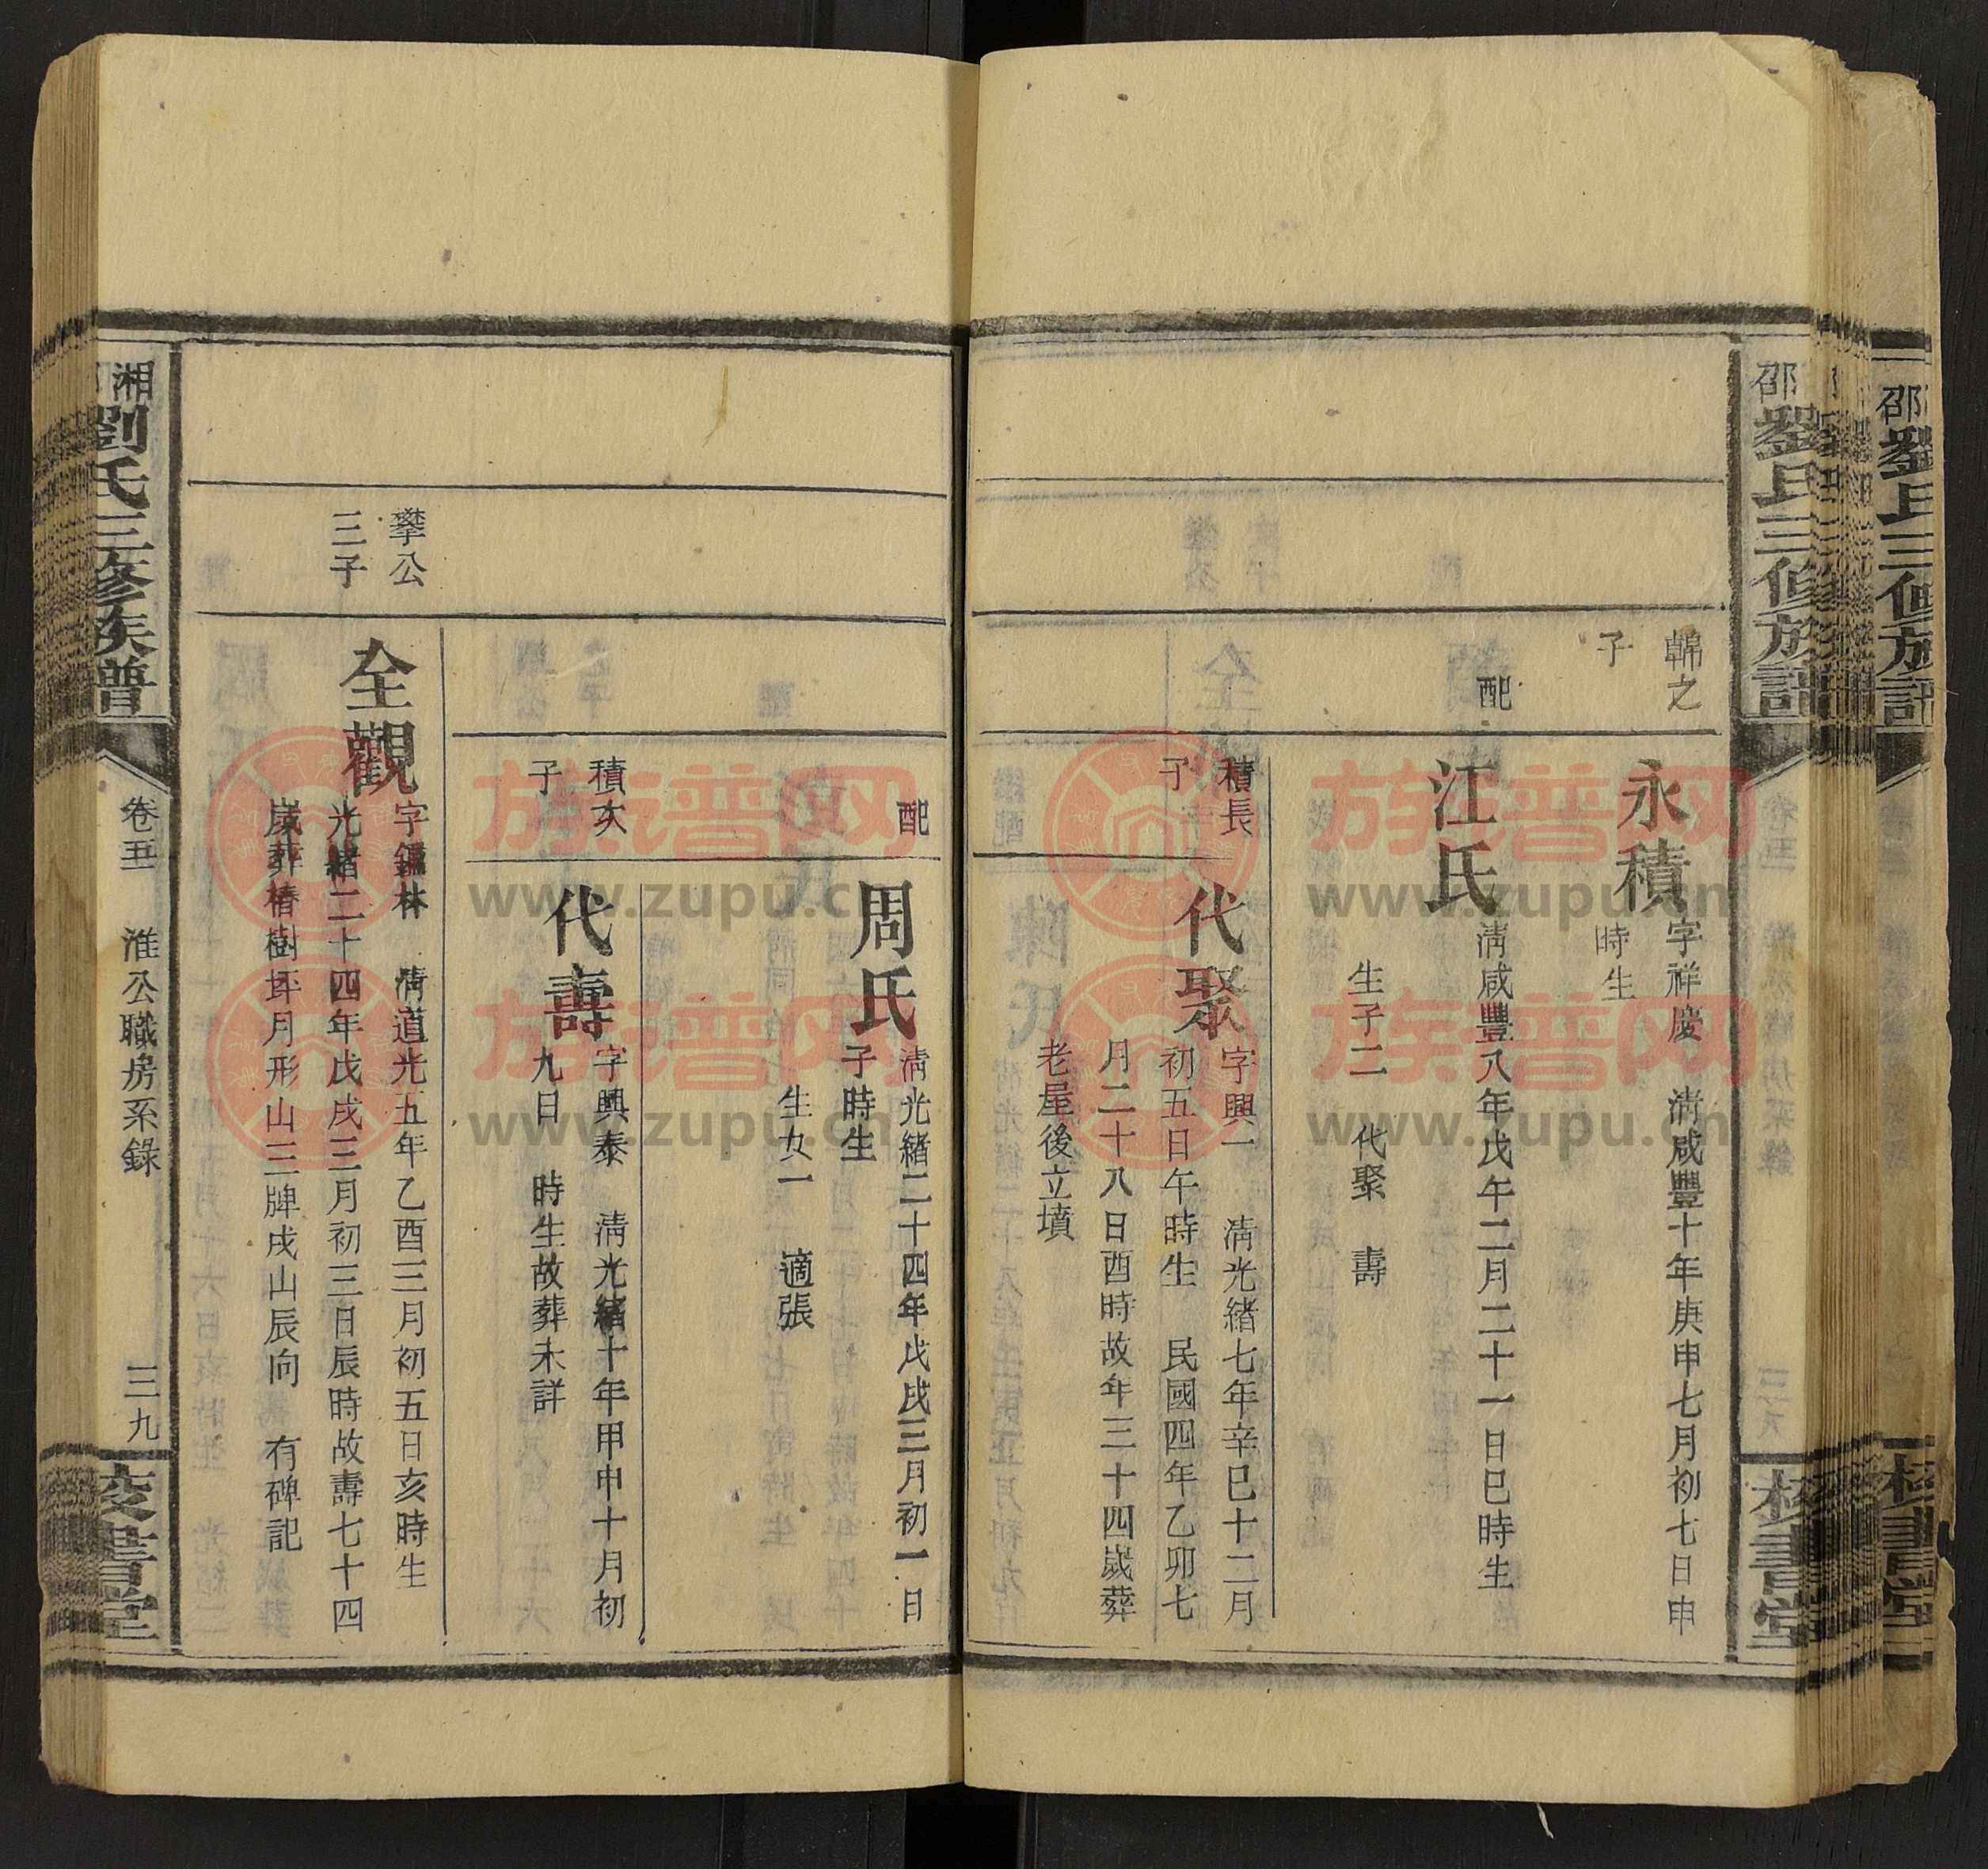 邵劉氏三修族譜
校書堂
邵劉氏三修族譜
校書堂
韓之
子
永積
字祥慶 淸咸豐十年庚申七月初七日申
時生
配
江氏
淸咸豐八年戊午二月二十一日巳時生
生子二 代聚 壽
積長
子
代聚
字興一 淸光緖七年辛巳十二月
初五日午時生 民國四年乙卯七
月二十八日酉時故年三十四歲葬
老屋後立墳
配
周氏
淸光緖二十四年戊戌三月初一日
子時生
生女一 適張
積次
子
代壽
字興泰 淸光緖十年甲申十月初
九日 時生故葬未詳
攀公
三子
全觀
字鏽林 淸道光五年乙酉三月初五日亥時生
光緖二十四年戊戌三月初三日辰時故壽七十四
歲葬椿樹坪月形山三牌戌山辰向 有碑記
湘劉氏三修族譜
卷五 淮公職房系錄 三九
校書堂
族譜网
www.zupu.cn
族譜网
www.zupu.cn
族譜网
www.zupu.cn
族譜网
www.zupu.cn